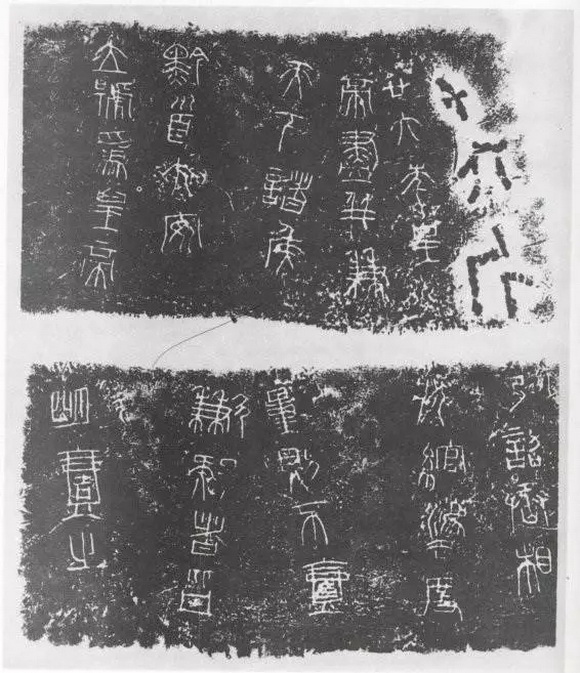 十六斤
廿六年皇
帝盡并兼
天下諸侯
黔首大安
立號為皇帝
乃詔丞相
狀綰灋度
量則不壹
歉疑者皆
明壹之